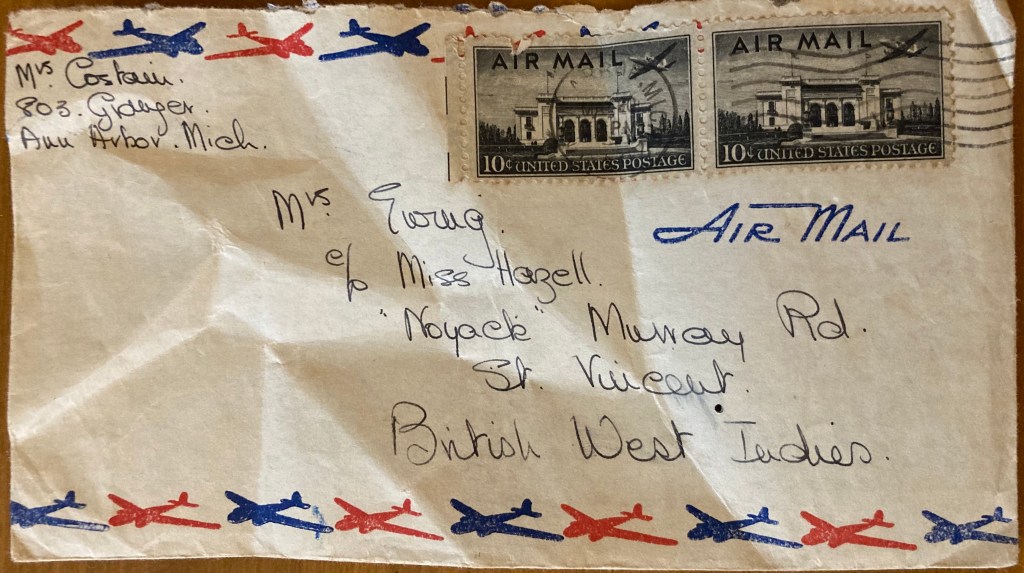 Mrs Costain.
803. Granger.
Ann Arbor. Mich.
AIR MAIL
10¢ UNITED STATES POSTAGE
AIR MAIL
10¢ UNITED STATES POSTAGE
AIR MAIL
Mrs. Ewing.
c/o Miss Hazell.
"Noyack" Murray Rd.
St. Vincent.
British West Indies.